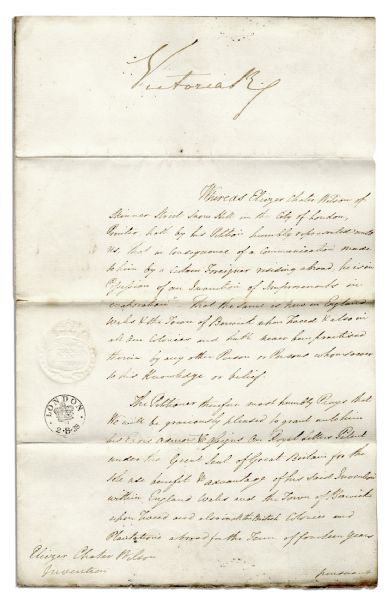 Victoria R
Whereas Eliezer Chater Wilson of
Skinner Street Snow Hill in the City of London,
hath by his Petition humbly represented unto
Us, that in Consequence of a Communication made
to him by a certain Foreigner residing abroad, he is in
Possession of an Invention of Improvements in
That the same is new in England
Wales & the Town of Berwick upon Tweed & also in
all our Colonies and hath never been practised
therein by any other Person or Persons whomsoever
to his Knowledge or belief.
The Petitioner therefore most humbly Prays that
We will be graciously pleased to grant unto him
his Our Royal Letters Patent
under the Great Seal of Great Britain for the
sole use benefit & advantage of his said Invention
within England Wales and the Town of Berwick
upon Tweed and also in all the British Colonies and
Plantations abroad for the Term of fourteen years
Eliezer Chater Wilson
Invention
pursuant
LONDON
2-8-